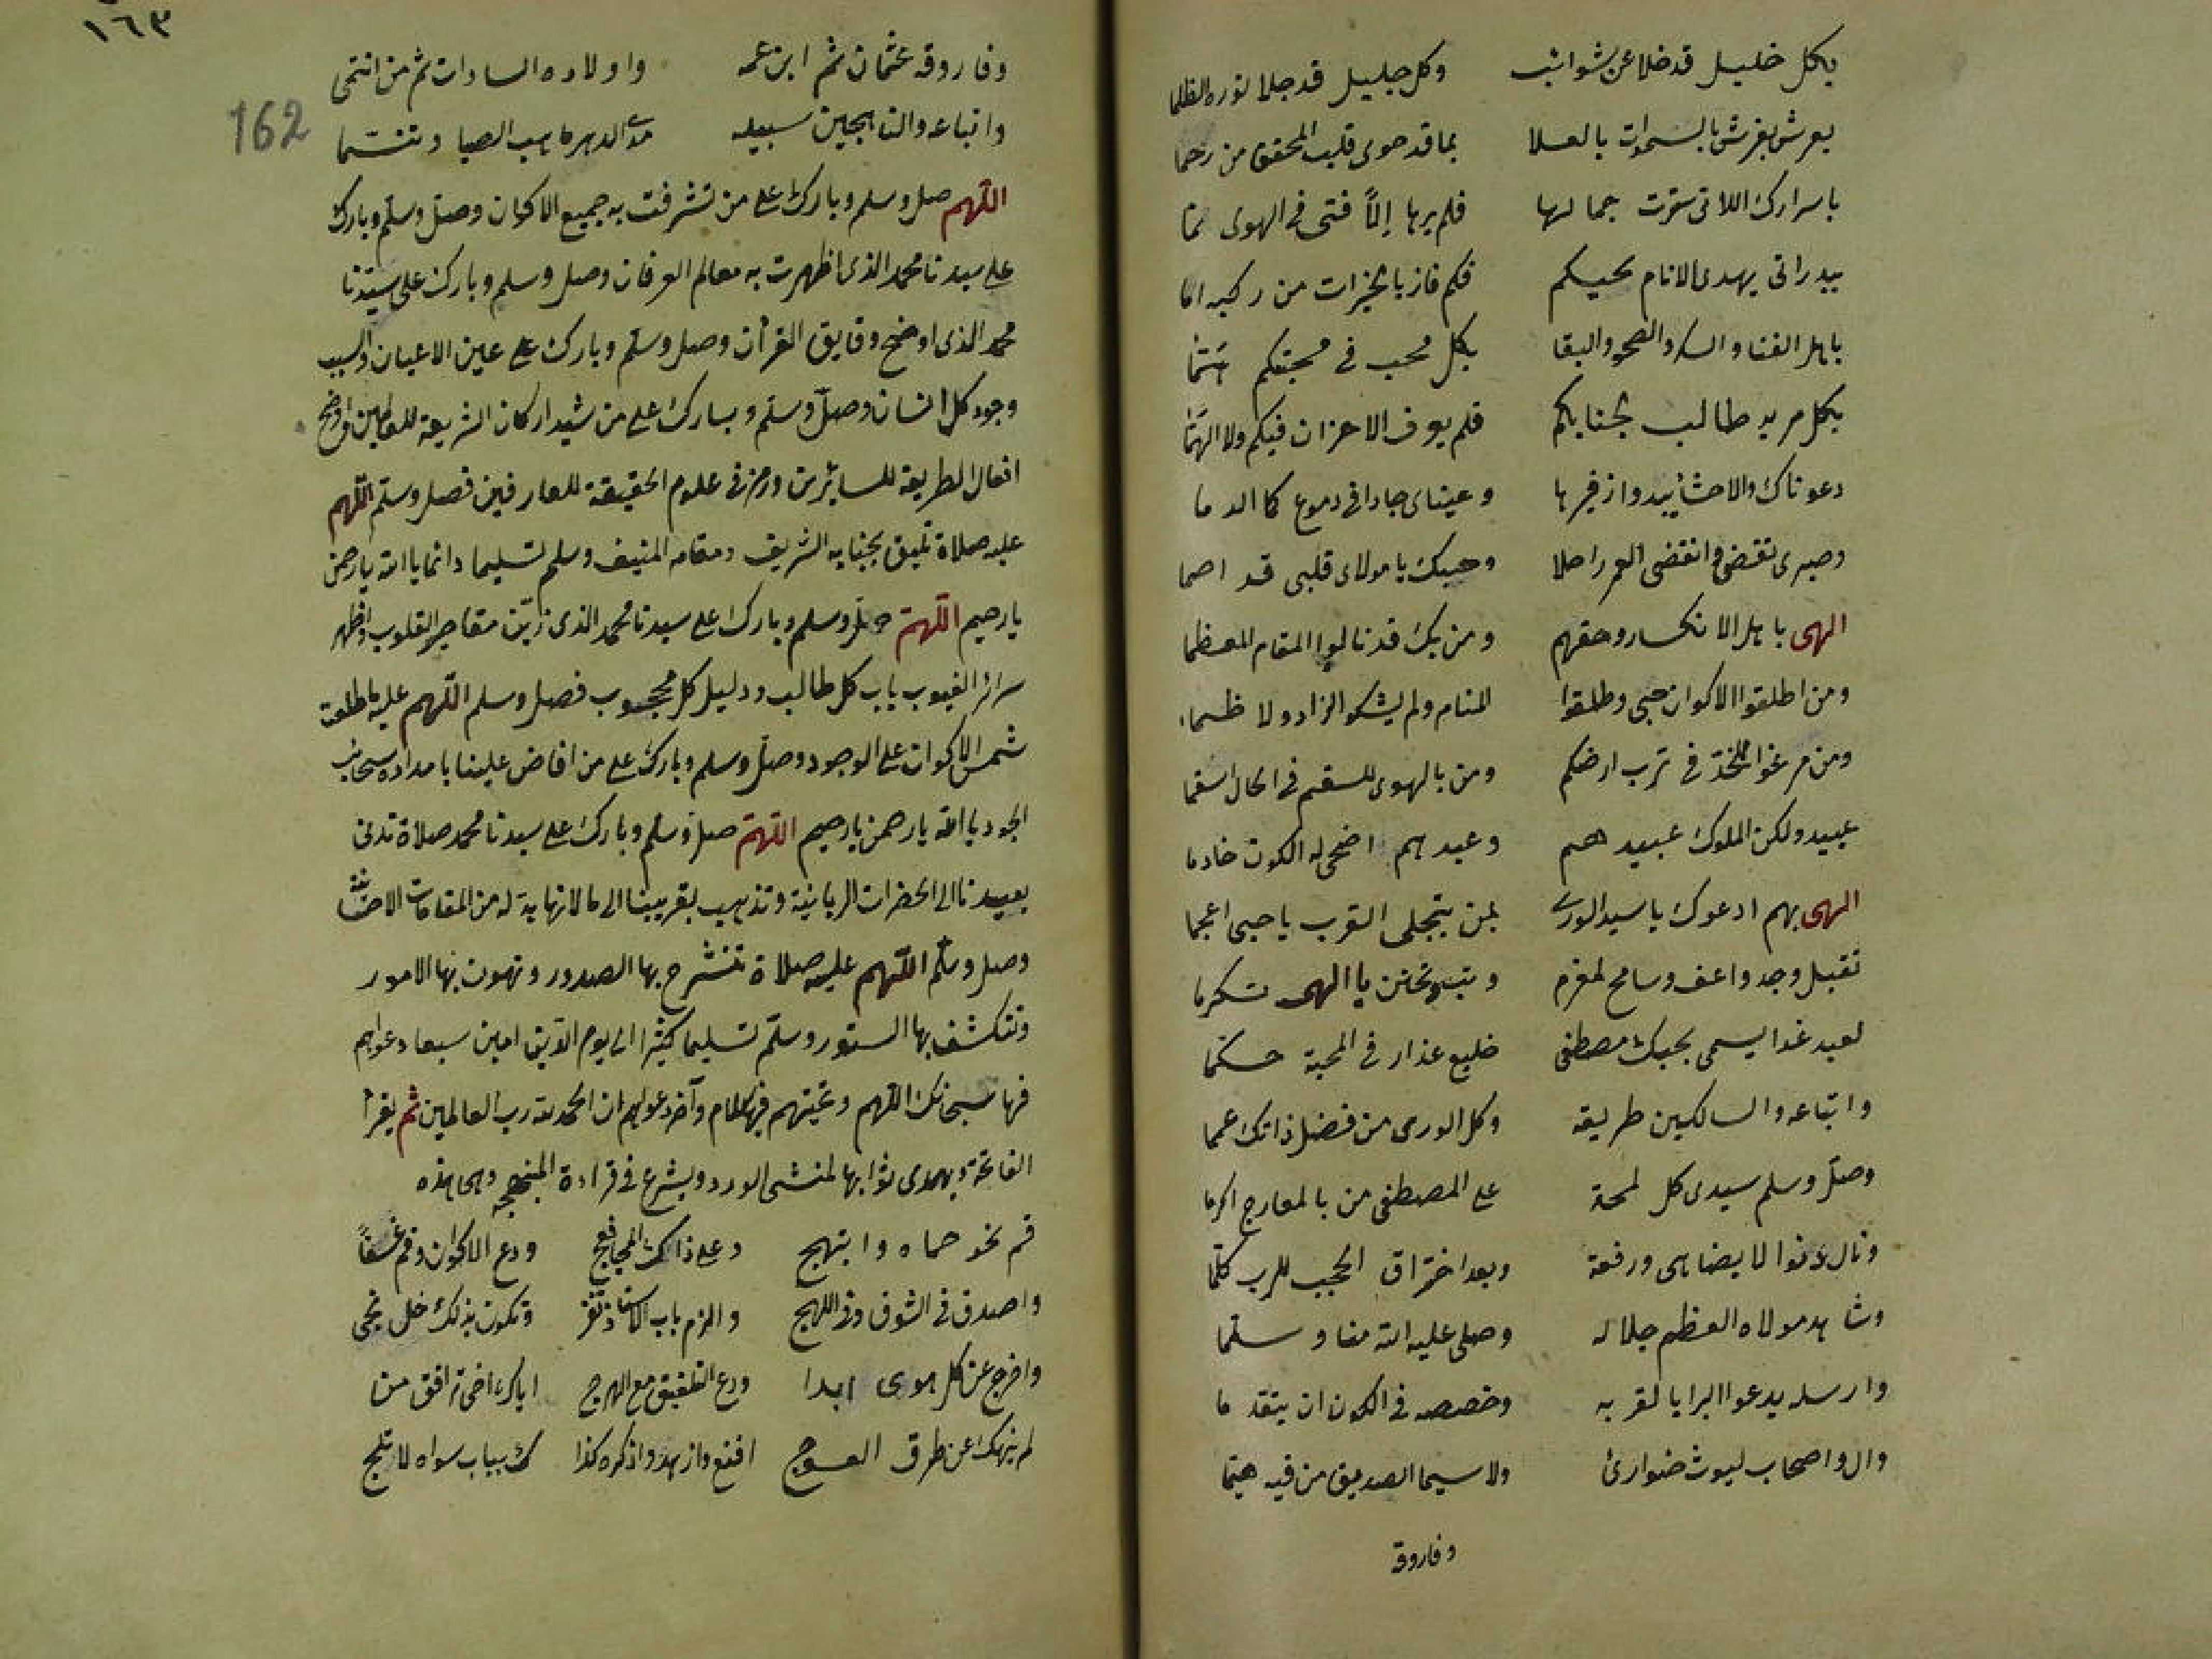 بكل خليل قد خلا عن شوائب وكل جليل قد جلا نوره الظلما
بعرش بفرش بالسموات بالعلا بما قد حوى قلب المحقق من رحما
باسرارك اللاتى سترت جمالها فلم يرها إلاّ فتى فى الهوى تما
ببدر اتى يهدى الانام لحيكم فكم فاز بالخيرات من ركبه اما
باهل الفنا والسكر والصحو والبقا بكل محب فى محبتكم هتما
بكل مريد طالب لجنابكم فلم يعرف الاحزان فيكم ولا الهما
دعوناك والاحشا يبدوا زفيرها وعيناى جادا فى دموع كما الدما
وصبرى تقضى وانقضى العمر راحلا وحبك يا مولاى قلبى قد اصما
الهى باهل الانكسار وحقهم ومن بك قد نالوا المقام المعظما
ومن اطلقوا الاكوان حبى وطلقوا المنام ولم يشكوا الزاد ولا ظما
ومن مرغوا للخدّ فى ترب ارضكم ومن بالهوى للسقم فى الحال اسقما
عبيد ولكن الملوك عبيدهم وعبدهم اضحى له الكون خادما
الهى بهم ادعوك يا سيد الورى لمن بتجلى القرب يا حبى اعجما
تقبل وجد واعف وسامح لمغرم وتب وتحنن يا الهى تكرما
لعبد غدا يسمى بحبك مصطفى خليع عذار فى المحبة حكما
واتباعه والسالكين طريقه وكل الورى من فضل ذاتك عمما
وصلّ وسلم سيدى كل لمحة على المصطفى من بالمعارج اكرما
ونال دنوا لا يضاهى ورفعة وبعد اختراق الحجب للرب كلّما
وشاهد مولاه العظيم جلاله وصلى عليه الله منا وسلما
وارسله يدعوا البرايا لقربه وخصصه فى الكون ان يتقدما
وال واصحاب ليوث ضوارئ ولا سيما الصديق من فيه هيتما
وفاروقه
١٦٣
162
وفاروقه عثمان ثم ابن عمه واولاده السادات ثم من انتمى
واتباعه والناهجين سبيله مدى الدهر ما هب الصبا وتنسما
اللّهم صل وسلم وبارك على من تشرفت به جميع الاكوان وصلّ وسلّم وبارك
على سيدنا محمد الذى اظهرت به معالم العرفان وصل وسلم وبارك على سيّدنا
محمد الذى اوضح دقايق القرأن وصل وسلّم وبارك على عين الاعيان والسبب
وجود كل انسان وصلّ وسلّم وبارك على من شيد اركان الشريعة للعالمين واوضح
افعال الطريقة للسايرين ورمز فى علوم الحقيقة للعارفين فصل وسلم اللّهم
عليه صلاة تليق بجنابه الشريف ومقامه المنيف وسلم تسليما دائما يا الله يا رحمن
يا رحيم اللّهمّ صلّ وسلم وبارك على سيدنا محمد الذى زيّن مقاصير القلوب واظهر
سرائر الغيوب باب كل طالب ودليل كل محجوب فصل وسلم اللّهم عليه ما طلعت
شمس الاكوان على الوجود وصلّ وسلم وبارك على من افاض علينا بامداده سحائب
الجود يا الله يا رحمن يا رحيم اللّهمّ صل وسلم وبارك على سيدنا محمد صلاة تدنى
بعيدنا الى الحضرات الربانية وتذهب بقريبنا الى ما لا نهاية له من المقامات الاحسانية
وصل وسلّم اللّهم عليه صلاة تنشرح بها الصدور وتهون بها الامور
وتنكشف بها الستور وسلّم تسليما كثيرا الى يوم الدّين امين سبعا دعواهم
فيها سبحانك اللهم وتحيتهم فيها سلام وآخر دعواهم ان الحمد لله رب العالمين ثم يقرأ
الفاتحة ويهدى ثوابها لمنشى الورد ويشرع فى قراءة المنبهجة وهى هذه
قم نحو حماه وابتهج وعلى ذاك المحيا فعج ودع الاكوان وقم غسقاً
واصدق فى الشوق وفى اللهج والزم باب الاستاذ تفز وتكون بذلك خل نجى
واخرج عن كل هوى ابدا ودع التلفيق مع الهرج اياك اخى ترافق من
لم ينهك عن طرق العوج اقنع وازهد واذكره كذا ك بباب سواه لا تلج